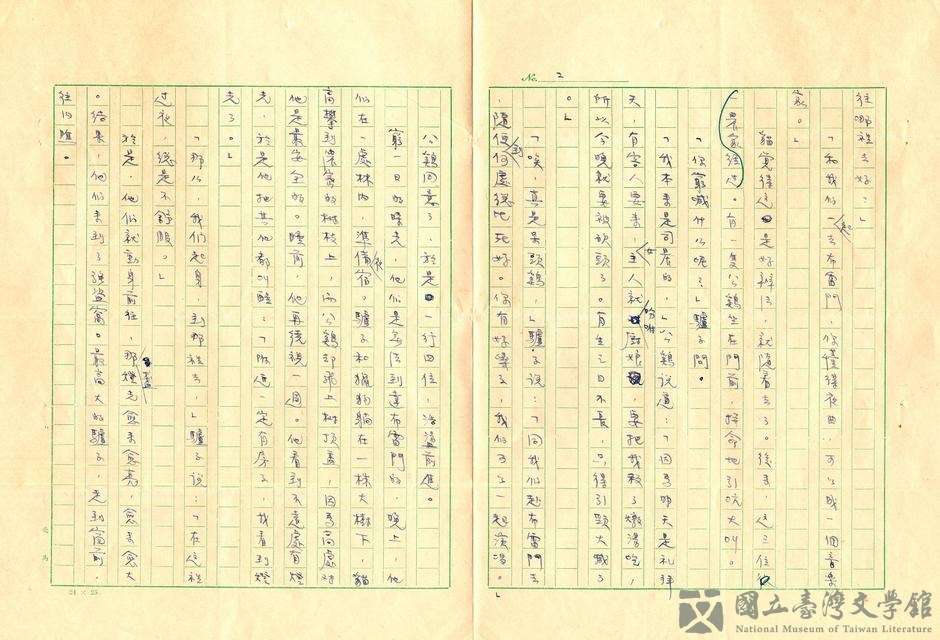 No. 2
往哪裡去好?」
「和我們一起去布雷門,你懂得夜曲,可以成一個音樂
家。」
貓覺得這是好辦法,就隨着去了。後來,這三位
農家經過。有一隻公鷄坐在門前,拚命地引吭大叫。
「你窮喊什么呢?」驢子問。
「我本來是司晨的,」公鷄说道:「因為明天是礼拜
天,有客人要來,女主人就吩咐廚娘,要把我殺了燉湯吃,
所以今晚就要被砍頭了。有生之日不長,只得引頸大喊了
。」
「唉,真是呆頭鷄,」驢子说:「同我們赴布雷門去
,隨便到何處總比死好。你有好嗓子,我們可以一起演湯。」
公鷄同意了,於是一行四位,浩盪前進。
窮一日的時光,他們是無法到達布雷門的,晚上,他
們在一處林內,準備夜宿。驢子和獵狗躺在一株大樹下,貓
高攀到濃密的樹枝上,而公鷄却飛上樹頂蓋,因為高處对
他是最安全的。睡前,他再繞視一週。他看到不遠處有燈
光,於是他把其他都叫醒:「附近一定有房子,我看到燈
光了。」
「那么,我们起身,到那裡去,」驢子说:「在这裡
过夜,總是不舒服。」
於是,他們就動身前往,那盞燈光愈來愈亮,愈來愈大
。結果,他們來到了強盜窩。最高大的驢子,走到窗前,
往内瞧。
24 × 25
國立臺灣文學館
National Museum of Taiwan Literature